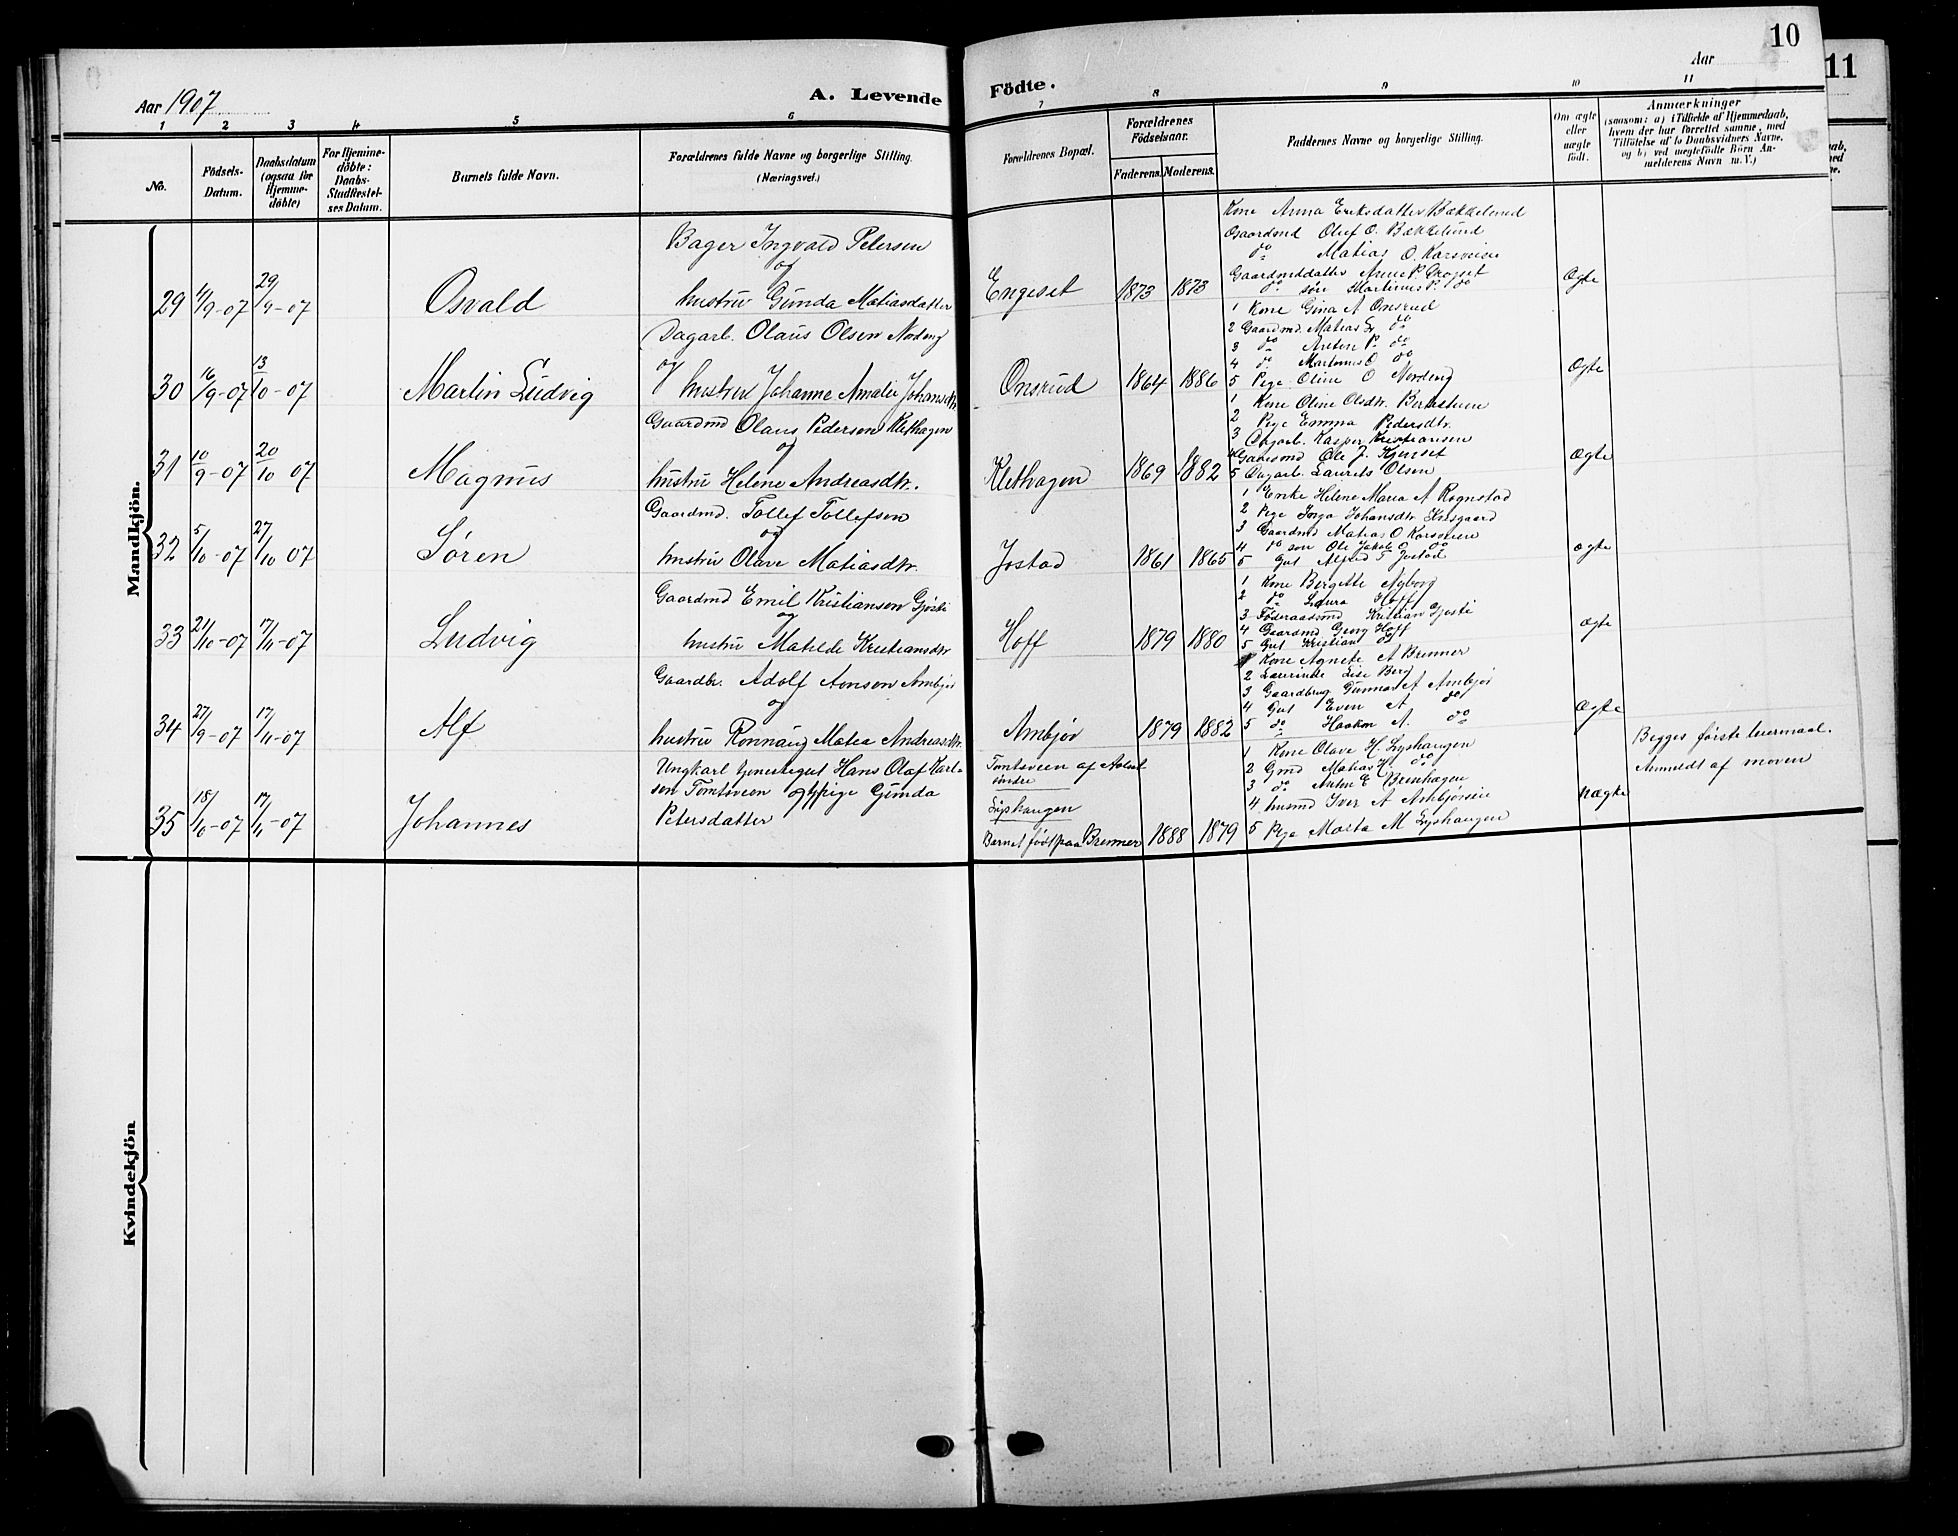 10
11
Aar 1907
A. Levende
Födte.
Aar
1 2 3 4 5 6 7 8 9 10 11
No.
Födsels-
Datum.
Daabsdatum
(ogsaa for
Hjemme-
døbte)
For Hjemme-
døbte:
Daabs-
Stadfestel-
ses Datum.
Barnets fulde Navn.
Forældrenes fulde Navne og borgerlige Stilling.
(Næringsvei.)
Forældrenes Bopæl.
Forældrenes
Fødselsaar.
Faderens. Moderens.
Faddernes Navne og borgerlige Stilling.
Om ægte
eller
uægte
født.
Anmærkninger
(saasom: a) i Tilfælde af Hjemmedaab,
hvem der har forrettet samme, med
Tilføielse af to Daabsvidners Navne,
og b) ved uegtefødte Börn An-
melderens Navn m. V.)
Mandkjön.
Bager Ingvald Petersen
og
29 11/9-07 29/9-07 Osvald hustru Gunda Matiasdatter
Engeset 1873 1873 Ægte
Kone Anna Eriksdatter Bækkelund
Gaardmd Oluf O. Bækkelund
do Matias O. Karsveien
Gaardmddatter Anne P. Skogset
do søn Martinus P. do
Dagarb. Olaus Olsen Nordeng
og
30 16/9-07 13/10-07 Martin Ludvig hustru Johanne Amalie Johansdtr.
Onsrud 1864 1886 Ægte
1 Kone Gina A Onsrud
2 Gaardmd. Matias L do
3 do Anton P. do
4 do Martinus O do
5 Pige Oline O Nordeng
Gaardmd Olaus Pedersen Klethagen
og
31 10/9-07 20/10 07 Magnus hustru Helene Andreasdtr.
Klethagen 1869 1882 Ægte
1 Kone Oline Olsdtr.
2 Pige Emma Pedersdtr.
3 Kasper Kristiansen
4 Gaardmd Ole J.
5 Dagarb. Laurits Olsen
Gaardmd. Tollef Tollefsen
og
32 5/10-07 27/10 07 Søren hustru Olave Matiasdtr.
Jostad 1861 1865 Ægte
1 Enke Helene Maria A Rognstad
2 Pige Inga Johansdtr
3 Gaardmd Matias O Karsveien
4 do søn Ole Jakob O do
5 Gut Alfred T Jostad
Gaardmd Emil Kristiansen
og
33 21/10-07 17/11-07 Ludvig hustru Matilde Kristiansdtr
Hoff 1879 1880 Ægte
1 Kone Bergitte Nyborg
2 do Laura Hoff
3 Føderaadsmd Kristian
4 Gaardmd Georg Hoff
5 Gut Kristian do
Gaardbr. Adolf Ambjør
og
34 27/9-07 17/11-07 Alf hustru Rønnaug Matea Andreasdtr.
Ambjør 1879 1882 Ægte
1 Kone Agnete A Brenner
2 Lærerinde Lise Berg
3 Gaardbrug Gunnar A Ambjør
4 Gut Even A do
5 do Haakon A. do
Ungkarl tjenestegut Hans Olaf Karl-
sen Tomtsveen og pige Gunda
35 18/10-07 17/11-07 Johannes Petersdatter
Tomtsveen af
søndre
Lyshaugen
Barnet født paa Brenner 1888 1879 Uægte
1 Kone Olave H. Lyshaugen
2 Gmd Matias H do
3 do Anton E Brenhagen
4 husmd Iver A
5 Pige Marta M Lyshaugen
Begges første leiermaal.
Anmeldt af moren
Kvindekjön